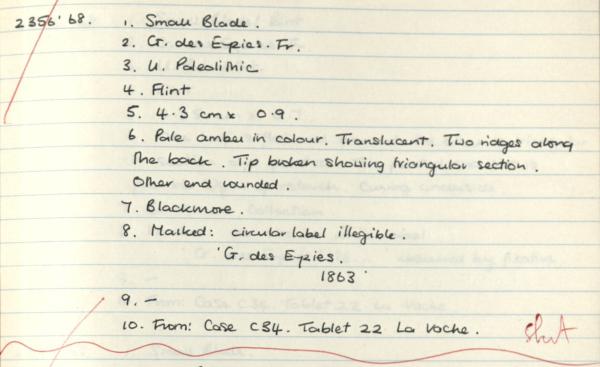 2356'68. 1. Small Blade.
2. G. des Eyzies. Fr.
3. U. Paleolithic
4. Flint
5. 4.3 cm x 0.9.
6. Pale amber in colour. Translucent. Two ridges along
the back. Tip broken showing triangular section.
Other end rounded.
7. Blackmore.
8. Marked: circular label illegible.
'G. des Eyzies.
1863'
9. –
10. From: Case C34. Tablet 22 La Vache.